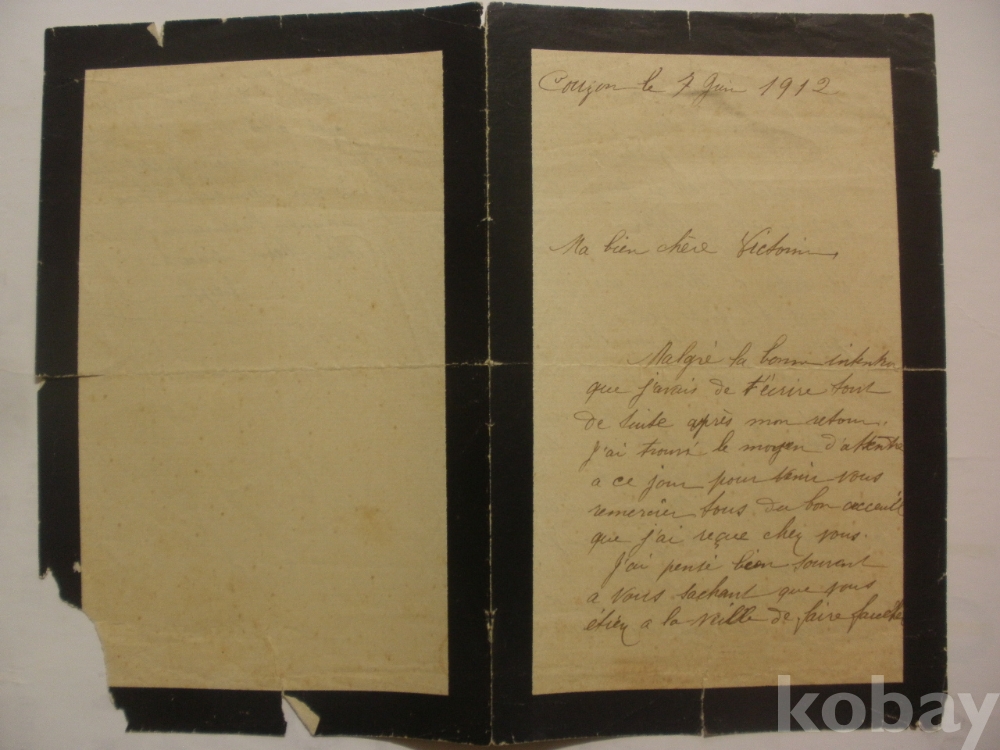 Couzon le 7 Juin 1912
Ma bien chère Victorine,
Malgré la bonne intention
que j'avais de t'écrire tout
de suite après mon retour,
J'ai trouvé le moyen d'attendre
a ce jour pour venir vous
remercier tous du bon acceuil
que j'ai reçue chez vous.
J'ai pensé bien souvent
a vous sachant que vous
étiez a la veille de faire faucher
kobay